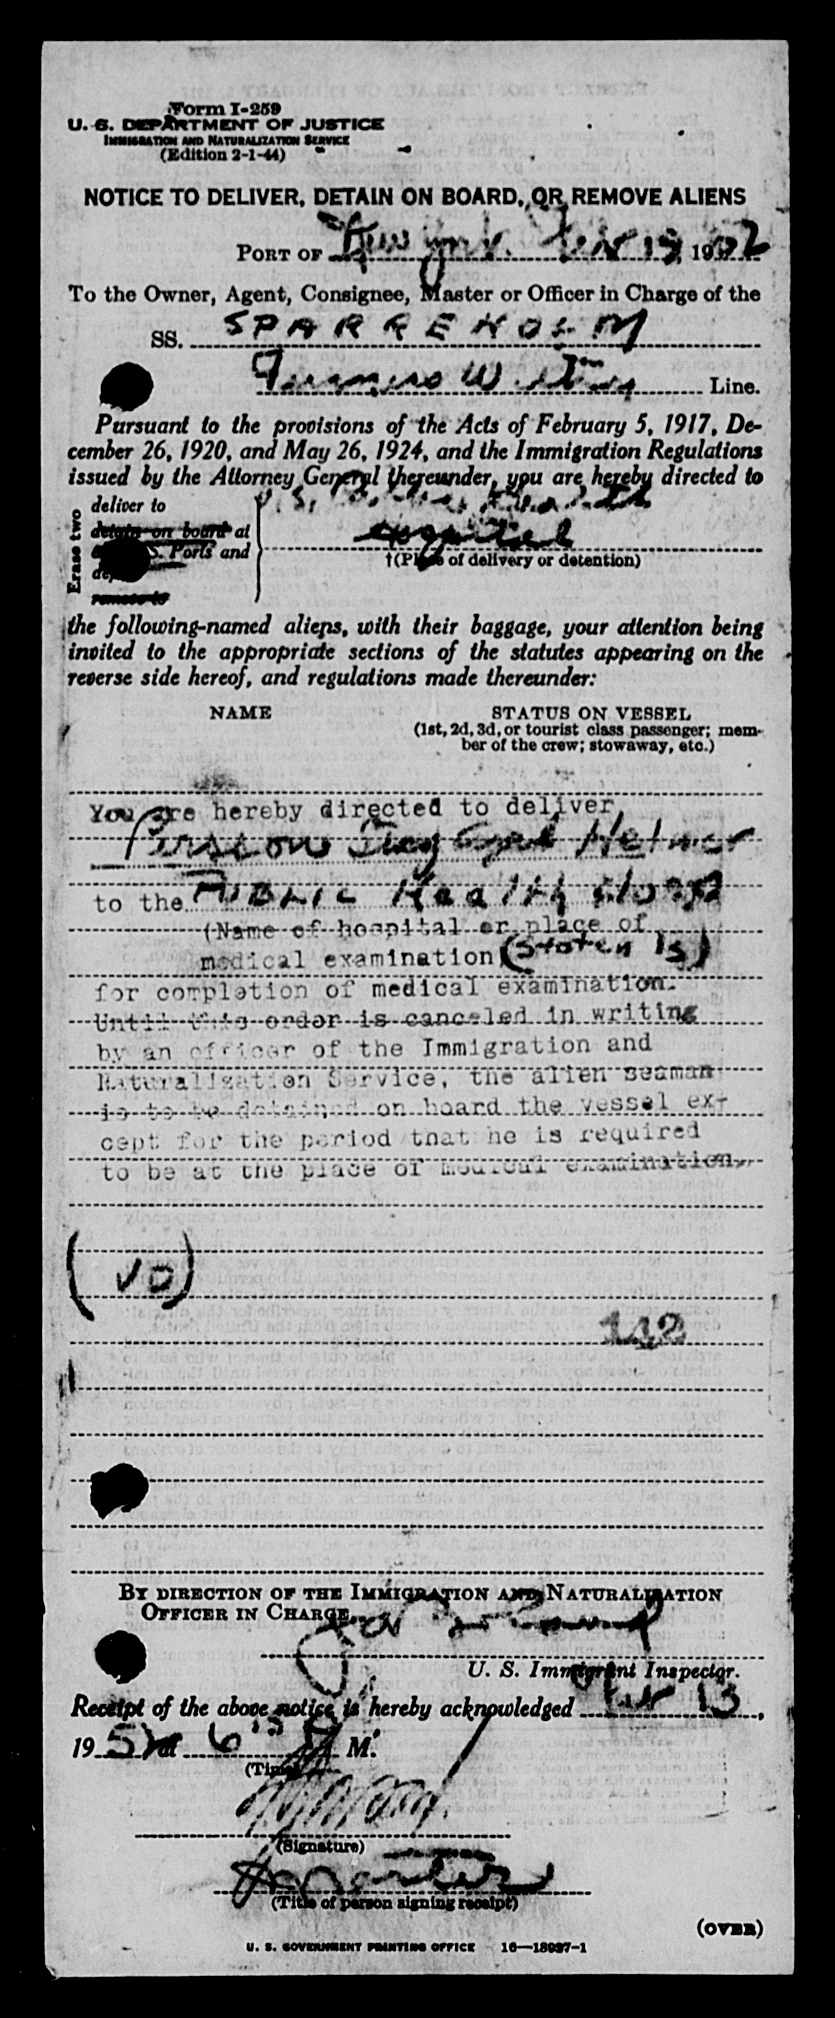 Form I-259
U. S. DEPARTMENT OF JUSTICE
IMMIGRATION AND NATURALIZATION SERVICE
(Edition 2-1-44)
NOTICE TO DELIVER, DETAIN ON BOARD, OR REMOVE ALIENS
PORT OF New York. 13, 1952
To the Owner, Agent, Consignee, Master or Officer in Charge of the
SS. SPARREHOLM
Line.
Pursuant to the provisions of the Acts of February 5, 1917, De-
cember 26, 1920, and May 26, 1924, and the Immigration Regulations
issued by the Attorney General thereunder, you are hereby directed to
Erase two
deliver to
detain on board at
U. S. Ports and
remove to
U. S. Public Health
Hospital
†(Place of delivery or detention)
the following-named aliens, with their baggage, your attention being
invited to the appropriate sections of the statutes appearing on the
reverse side hereof, and regulations made thereunder:
NAME
STATUS ON VESSEL
(1st, 2d, 3d, or tourist class passenger; mem-
ber of the crew; stowaway, etc.)
You are hereby directed to deliver
Persson Helmer
to the PUBLIC Health Hosp
(Name of hospital or place of
medical examination (Staten Is)
for completion of medical examination.
Until this order is canceled in writing
by an officer of the Immigration and
Naturalization Service, the alien seaman
is to be detained on board the vessel ex-
cept for the period that he is required
to be at the place of medical examination.
(VD)
142
BY DIRECTION OF THE IMMIGRATION AND NATURALIZATION
OFFICER IN CHARGE
U. S. Immigrant Inspector.
Receipt of the above notice is hereby acknowledged 13,
19 52 at M.
(Time)
(Signature)
(Title of person signing receipt)
(OVER)
U. S. GOVERNMENT PRINTING OFFICE 16—18937-1